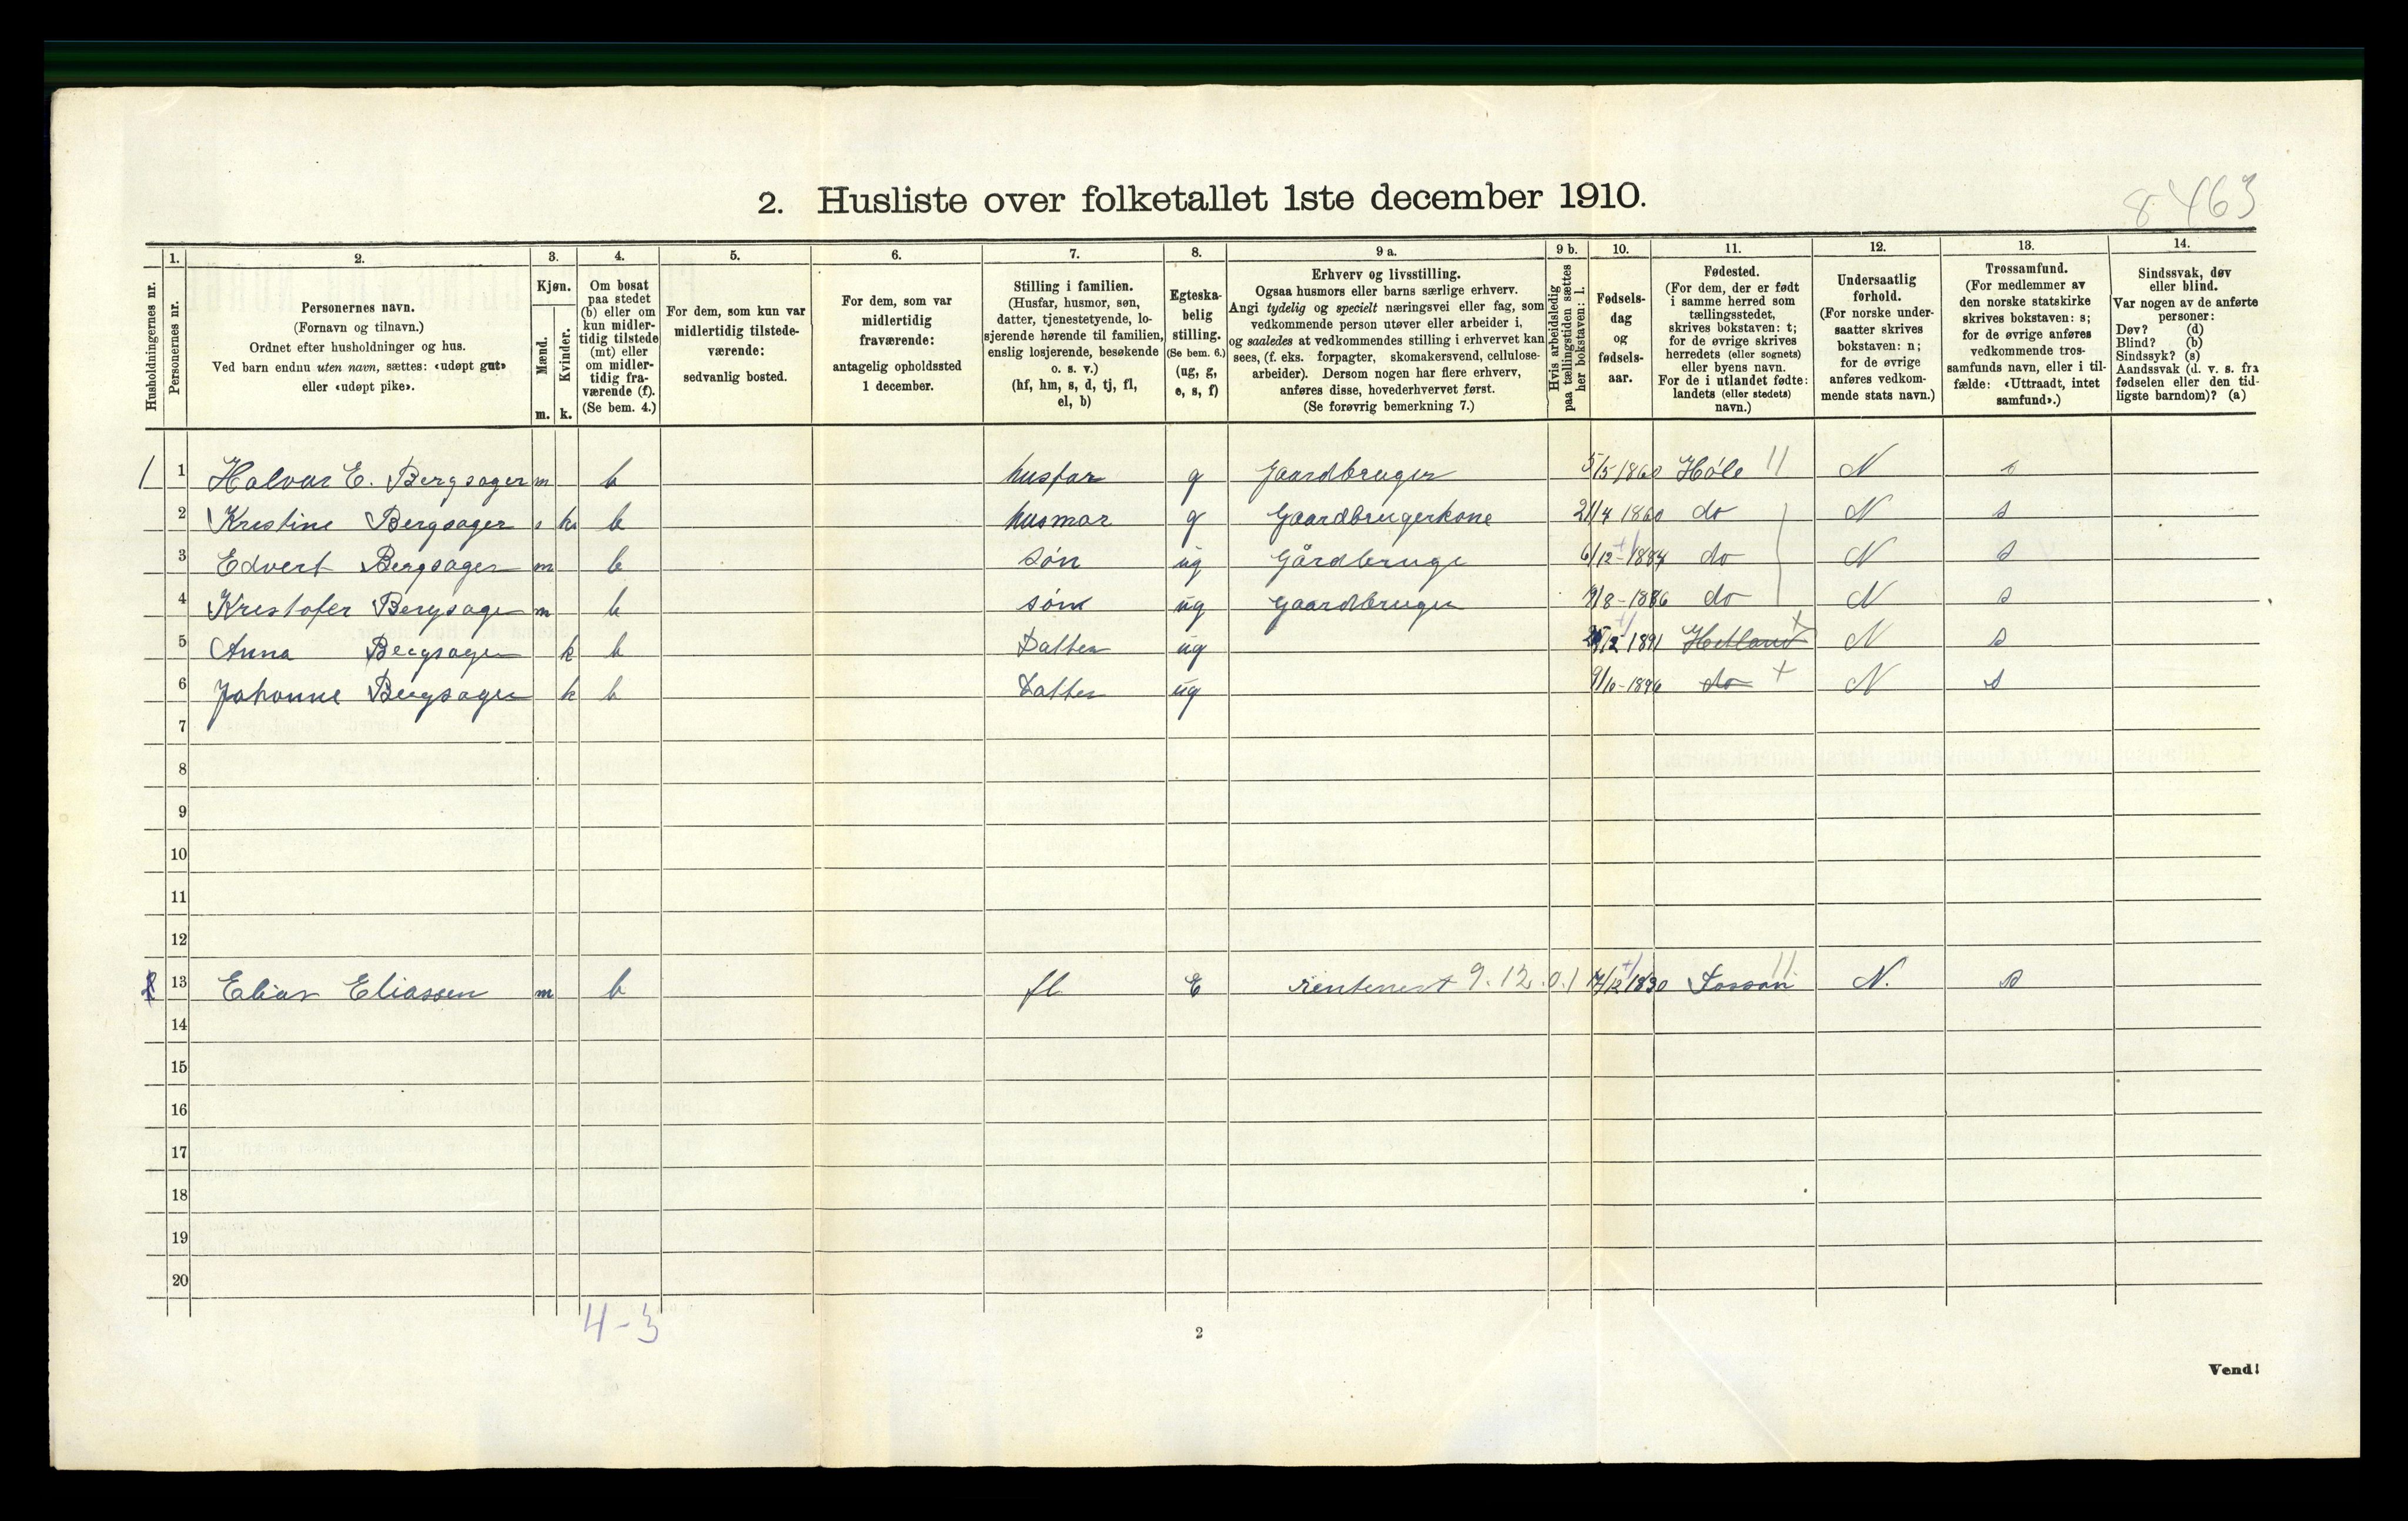 2. Husliste over folketallet 1ste december 1910.
8463
Husholdningernes nr.
1.
Personernes nr.
2.
Personernes navn.
(Fornavn og tilnavn.)
Ordnet efter husholdninger og hus.
Ved barn endnu uten navn, sættes: «udøpt gut»
eller «udøpt pike».
3.
Kjøn.
Mænd.
Kvinder.
m. k.
4.
Om bosat
paa stedet
(b) eller om
kun midler-
tidig tilstede
(mt) eller
om midler-
tidig fra-
værende (f).
(Se bem. 4.)
5.
For dem, som kun var
midlertidig tilstede-
værende:
sedvanlig bosted.
6.
For dem, som var
midlertidig
fraværende:
antagelig opholdssted
1 december.
7.
Stilling i familien.
(Husfar, husmor, søn,
datter, tjenestetyende, lo-
sjerende hørende til familien,
enslig losjerende, besøkende
o. s. v.)
(hf, hm, s, d, tj, fl,
el, b)
8.
Egteska-
belig
stilling.
(Se bem. 6.)
(ug, g,
e, s, f)
9 a.
Erhverv og livsstilling.
Ogsaa husmors eller barns særlige erhverv.
Angi tydelig og specielt næringsvei eller fag, som
vedkommende person utøver eller arbeider i,
og saaledes at vedkommendes stilling i erhvervet kan
sees, (f. eks. forpagter, skomakersvend, cellulose-
arbeider). Dersom nogen har flere erhverv,
anføres disse, hovederhvervet først.
(Se forøvrig bemerkning 7.)
9 b.
Hvis arbeidsledig
paa tællingstiden sættes
her bokstaven: l.
10.
Fødsels-
dag
og
fødsels-
aar.
11.
Fødested.
(For dem, der er født
i samme herred som
tællingsstedet,
skrives bokstaven: t;
for de øvrige skrives
herredets (eller sognets)
eller byens navn.
For de i utlandet fødte:
landets (eller stedets)
navn.)
12.
Undersaatlig
forhold.
(For norske under-
saatter skrives
bokstaven: n;
for de øvrige
anføres vedkom-
mende stats navn.)
13.
Trossamfund.
(For medlemmer av
den norske statskirke
skrives bokstaven: s;
for de øvrige anføres
vedkommende tros-
samfunds navn, eller i til-
fælde: «Uttraadt, intet
samfund».)
14.
Sindssvak, døv
eller blind.
Var nogen av de anførte
personer:
Døv? (d)
Blind? (b)
Sindssyk? (s)
Aandssvak (d. v. s. fra
fødselen eller den tid-
ligste barndom)? (a)
1 1 Halvar E. Bergsager m b husfar g Gaardbruger 5/5 1860 Høle N s
2 Kristine Bergsager k b husmor g Gaardbrugerkone 21/4 1860 do N s
3 Edvert Bergsager m b søn ug Gårdbruge 6/12-1884 do N s
4 Kristofer Bergsage m b søn ug Gaardbruger 9/8-1886 do N s
5 Anna Bergsager k b Datter ug /12 1891 Hetland N s
6 Johanne Bergsager k b Datter ug 9/6-1896 do N s
7
8
9
10
11
12
13 Elias Eliassen m b fl E rentenest 9.12.01 17/12 1830 Fossan N. s
14
15
16
17
18
19
20
4-3
2
Vend!